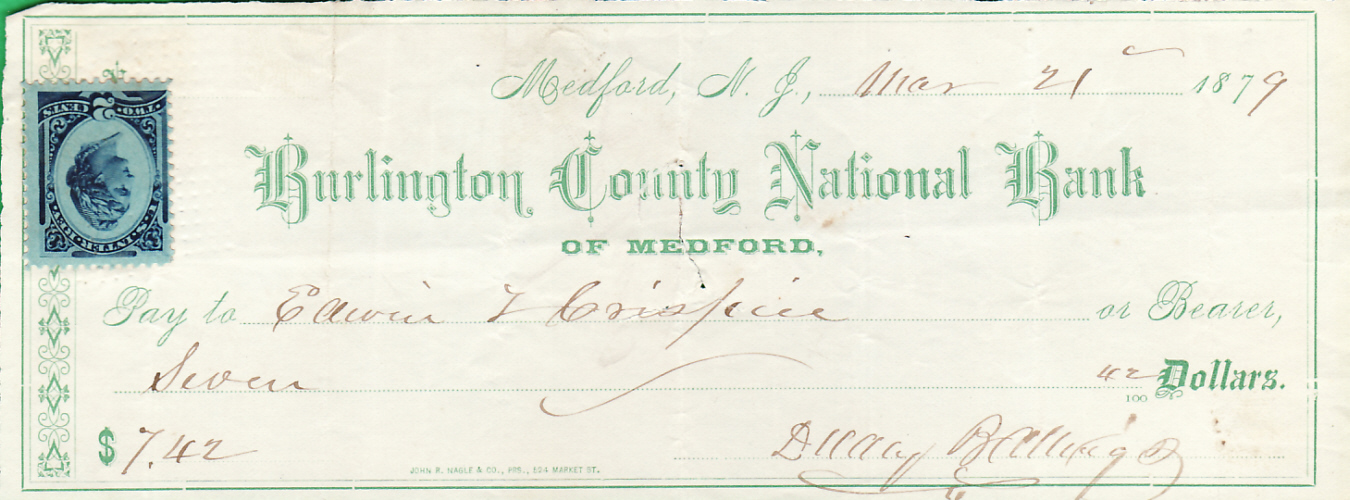 Medford, N. J., Mar 21 1879
Burlington County National Bank
OF MEDFORD,
Pay to Edwin T Crispin or Bearer,
Seven 42/100 Dollars.
$ 7.42
JOHN R. NAGLE & CO., PRS., 624 MARKET ST.
TWO CENTS 2
U.S. INTER. REV.